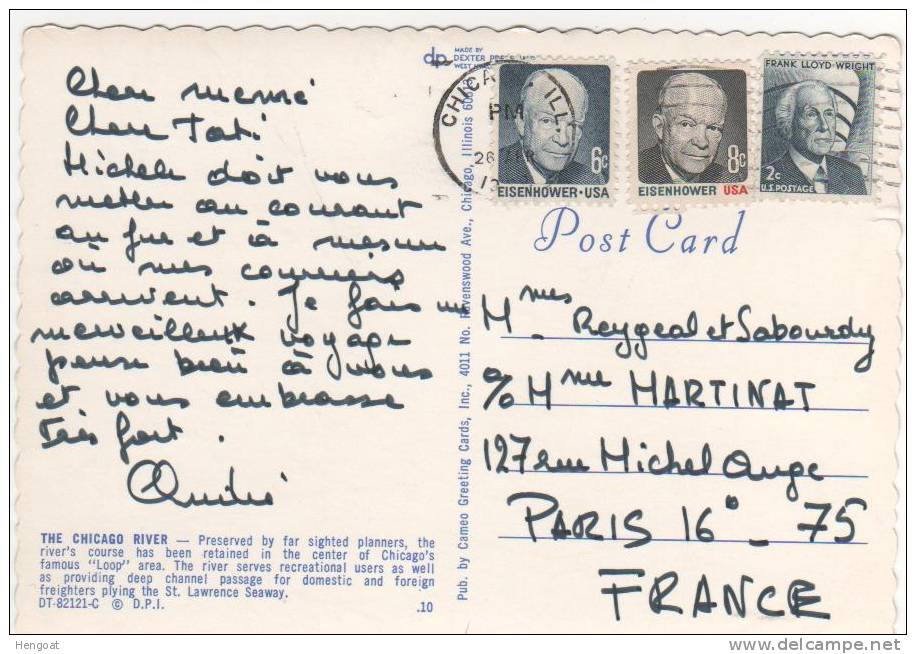 Chère mémé
Chère Tati
Michèle doit vous
mettre au courant
au fur et à mesure
où mes courriers
arrivent. Je fais un
merveilleux voyage
pense bien à vous
et vous embrasse
Très fort.
André
THE CHICAGO RIVER — Preserved by far sighted planners, the
river's course has been retained in the center of Chicago's
famous "Loop" area. The river serves recreational users as well
as providing deep channel passage for domestic and foreign
freighters plying the St. Lawrence Seaway.
DT-82121-C © D.P.I. .10
Pub. by Cameo Greeting Cards, Inc., 4011 No. Ravenswood Ave., Chicago, Illinois
dp MADE BY
DEXTER
WEST
CHICAGO, ILL.
PM
26
6c
EISENHOWER·USA
8c
EISENHOWER USA
FRANK LLOYD WRIGHT
2c
U.S. POSTAGE
Post Card
Mmes Reygeal et Sabourdy
c/o Mme MARTINAT
127 rue Michel Ange
PARIS 16° - 75
FRANCE
Hengoat
www.delcampe.net